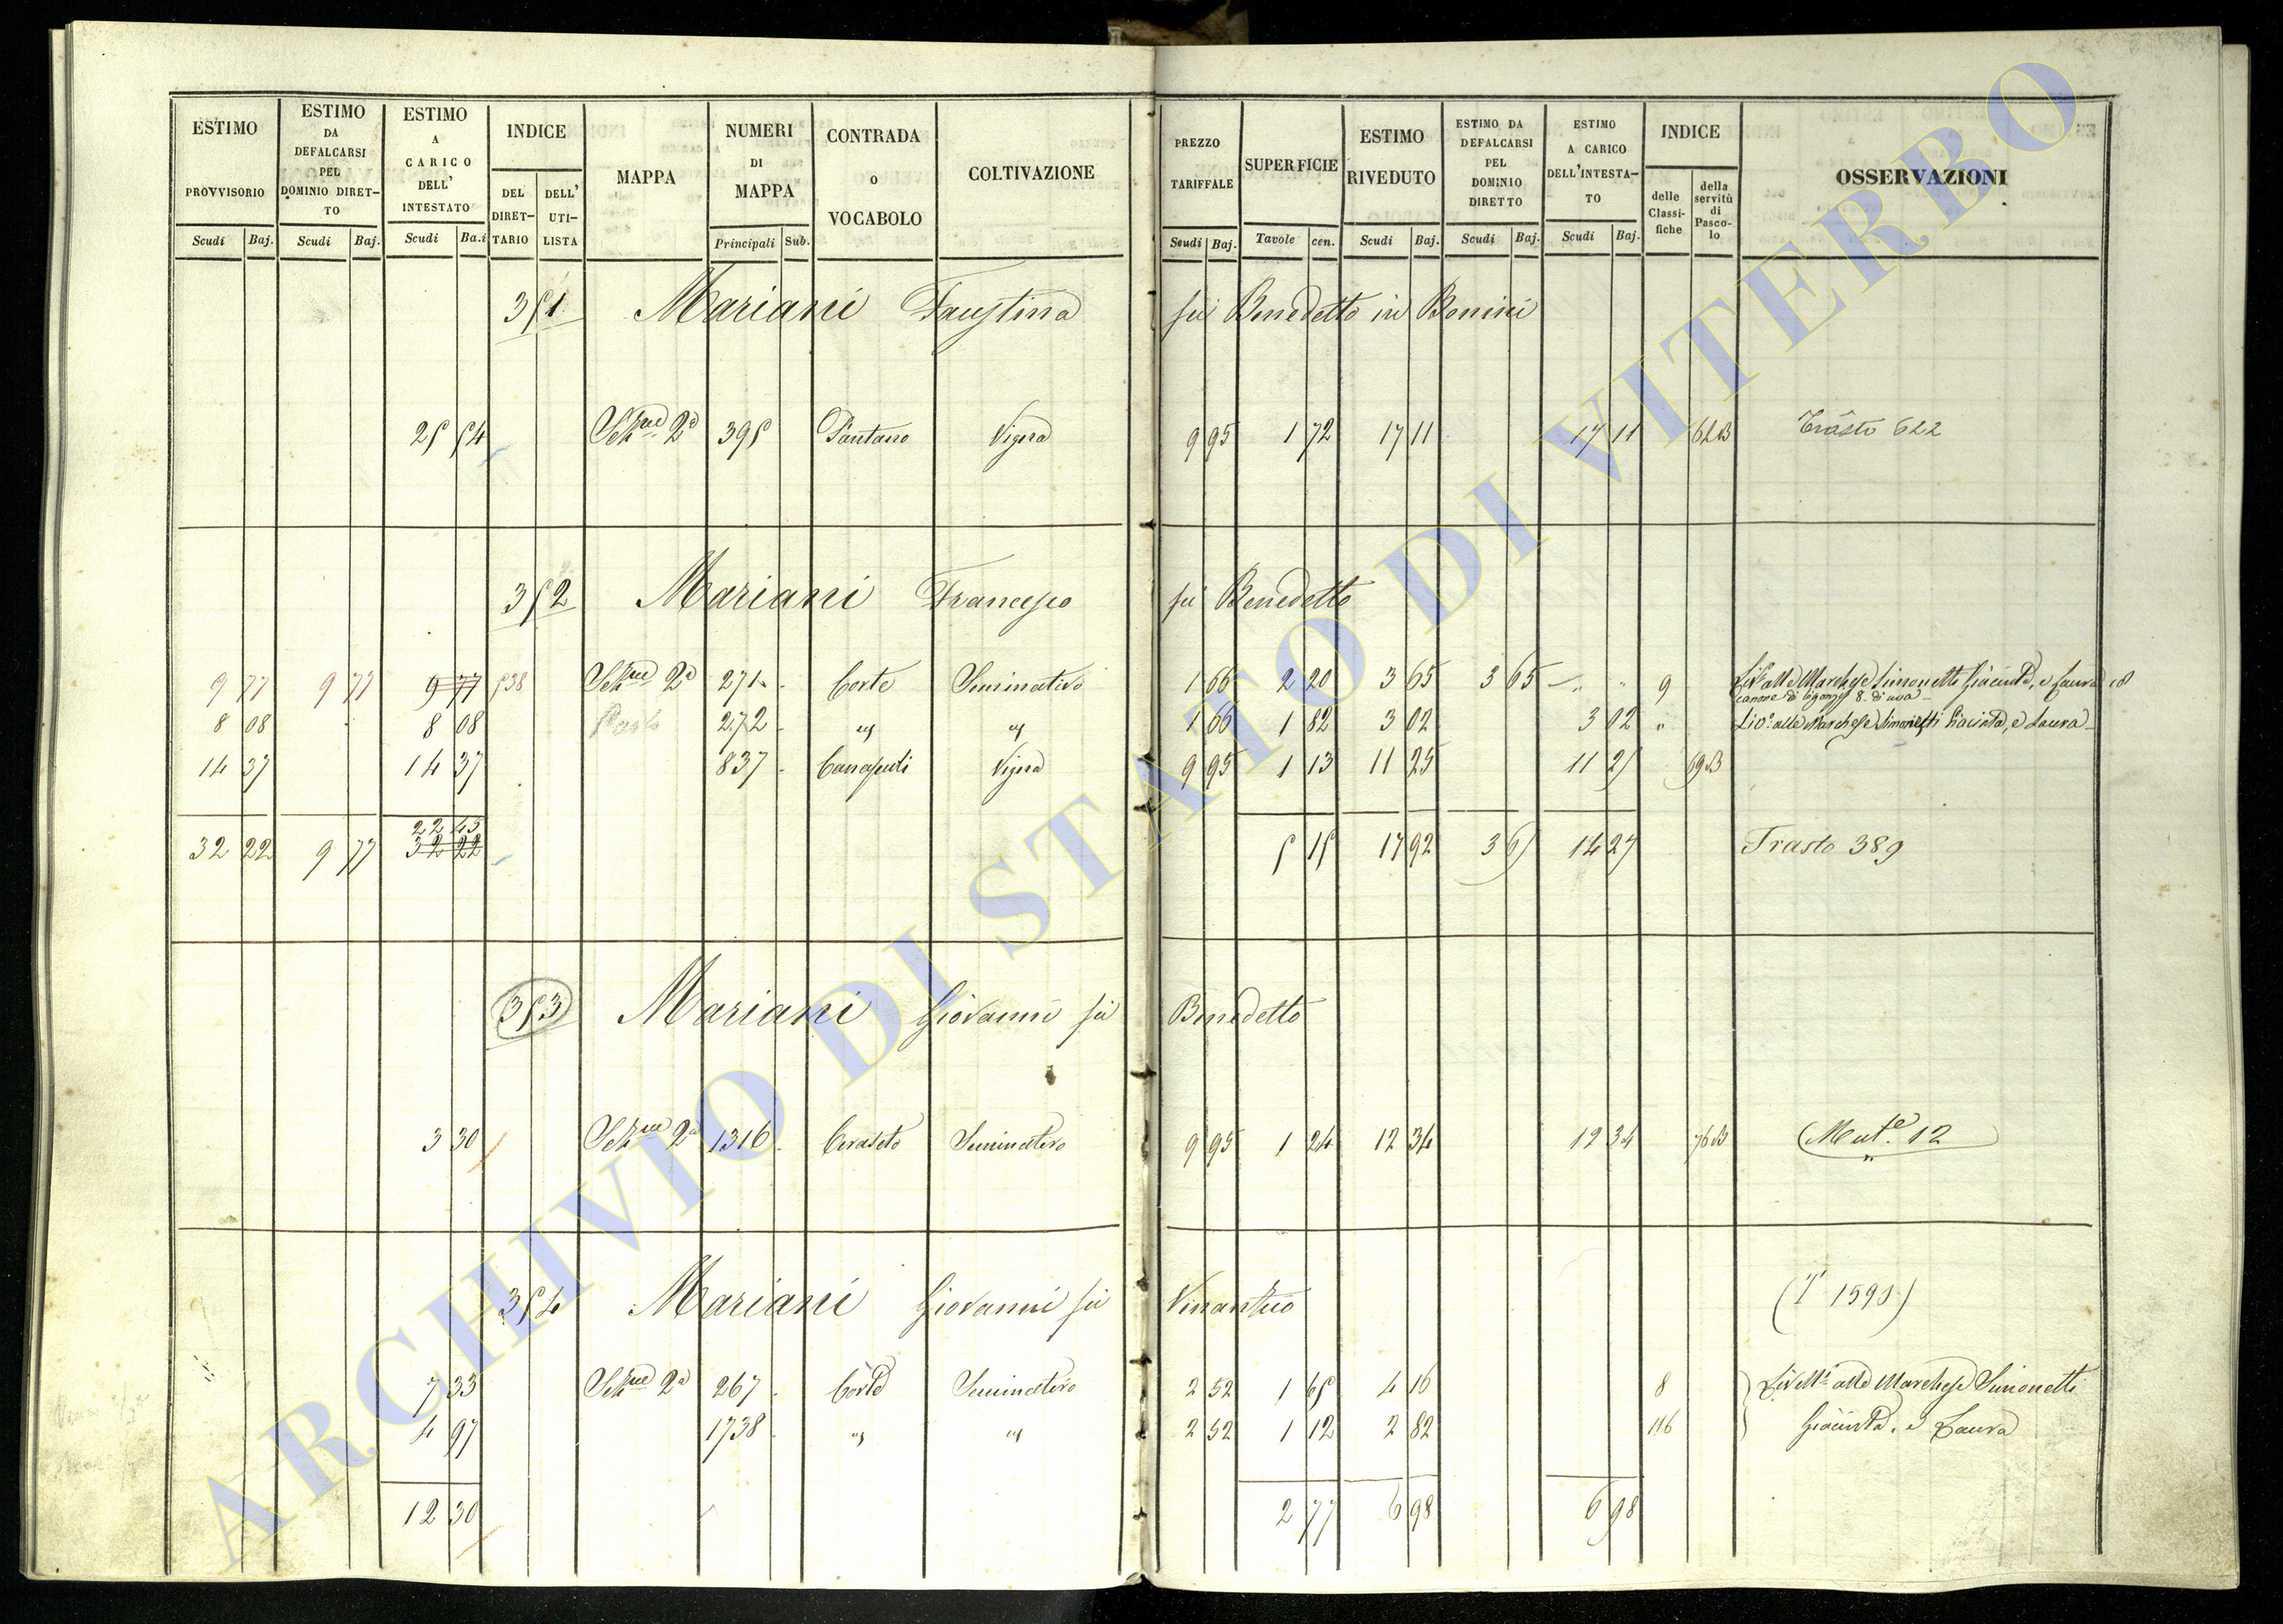 ESTIMO PROVVISORIO Scudi Baj.
ESTIMO DA DEFALCARSI PEL DOMINIO DIRETTO Scudi Baj.
ESTIMO A CARICO DELL' INTESTATO Scudi Ba.i
INDICE DEL DIRETTARIO DELL' UTILISTA
MAPPA
NUMERI DI MAPPA Principali Sub.
CONTRADA O VOCABOLO
COLTIVAZIONE
PREZZO TARIFFALE Scudi Baj.
SUPERFICIE Tavole cen.
ESTIMO RIVEDUTO Scudi Baj.
ESTIMO DA DEFALCARSI PEL DOMINIO DIRETTO Scudi Baj.
ESTIMO A CARICO DELL'INTESTATO Scudi Baj.
INDICE delle Classifiche della servitù di Pascolo
OSSERVAZIONI
351 Mariani Faustina fu Benedetto in Bonini
25 54 Sezne 2a 395 Pantano Vigna 9 95 1 72 17 11 17 11 62B Trasto 622
352 Mariani Francesco fu Benedetto
9 77 9 77 9 77 538 Sezne 2a 271 Corte Seminativo 1 66 2 20 3 65 3 65 — " " 9 Livo alle Marchese Simonetti Giacinta, e Laura col
canone di bigonzi 8. di uva
8 08 8 08 272 " " 1 66 1 82 3 02 3 02 " Livo alle Marchese Simonetti Giacinta, e Laura
14 37 14 37 837 Canapuli Vigna 9 95 1 13 11 25 11 25 69B
22 45
32 22 9 77 32 22 5 15 17 92 3 65 14 27 Trasto 389
353 Mariani Giovanni fu Benedetto
3 30 Sezne 2a 1316 Ceraseto Seminativo 9 95 1 24 12 34 12 34 76B Mute 12
354 Mariani Giovanni fu Vinantuo (T 1590)
7 33 Sezne 2a 267 Corte Seminativo 2 52 1 65 4 16 8 Livello alle Marchese Simonetti
4 97 1738 " " 2 52 1 12 2 82 116 Giacinta, e Laura
12 30 2 77 6 98 6 98
ARCHIVIO DI STATO DI VITERBO